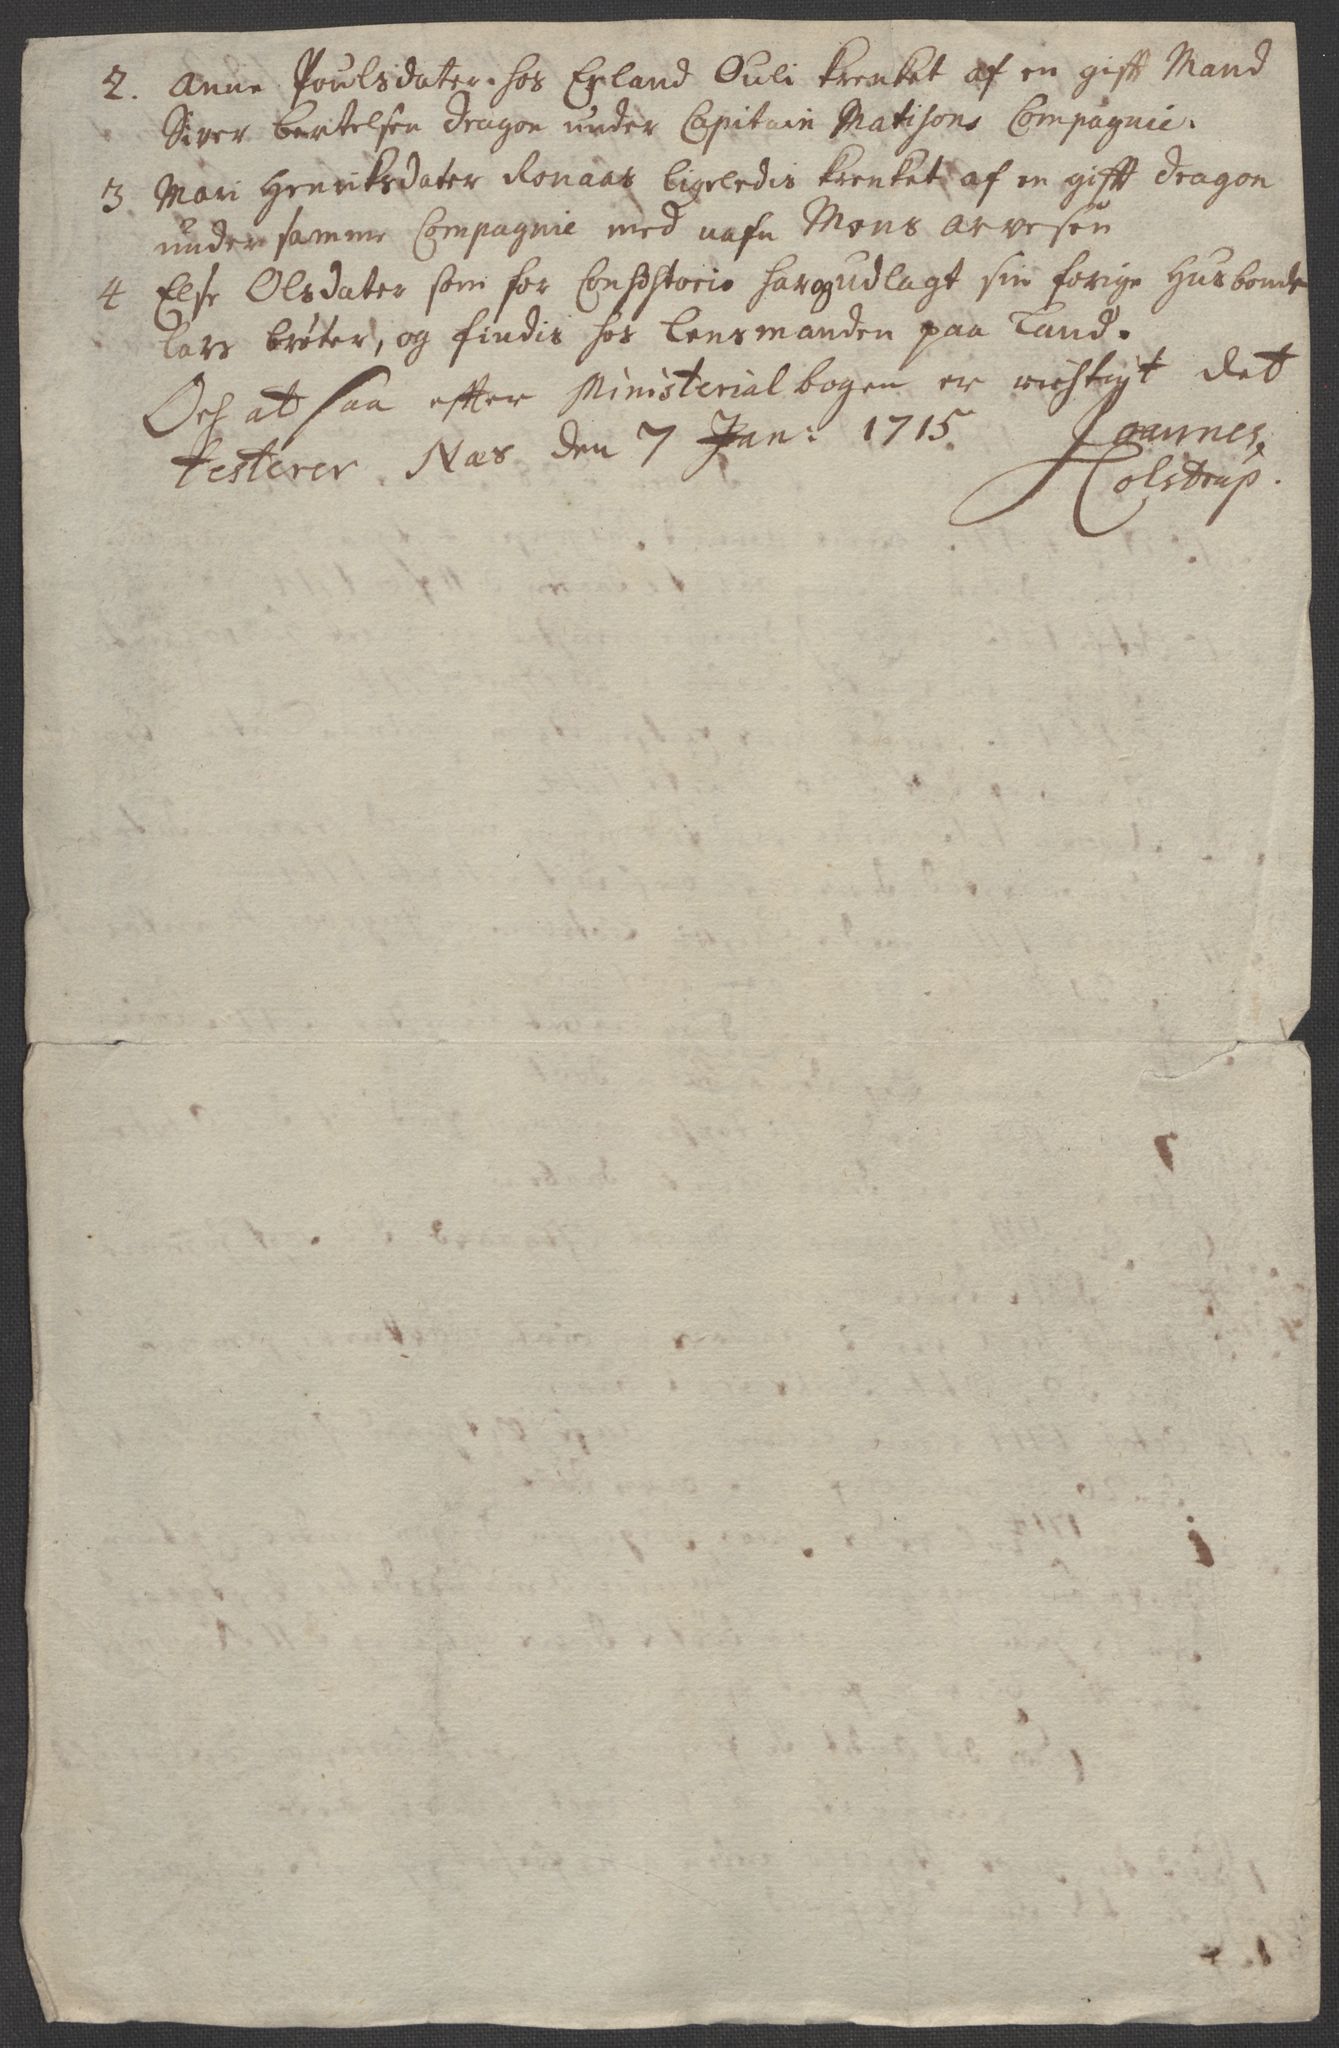 2. Anne Poulsdater hos Erland Ouli krenket af en gift Mand
Siver bertelsen dragon under Capitain Matisons Compagnie.
3 Mari Henriksdater Ronaas ligeledis krenket af en gifft dragon
under samme Compagnie med nafn Mons arvesen
4 Else Olsdater som for Consistorio har udlagt sin forige Husbonde
Lars bröter, og findis hos lensmanden paa Tand.
Och at saa effter Ministerial bogen er richtigt det
testerer Næs den 7 Jan: 1715 Joannes
Colstrup.